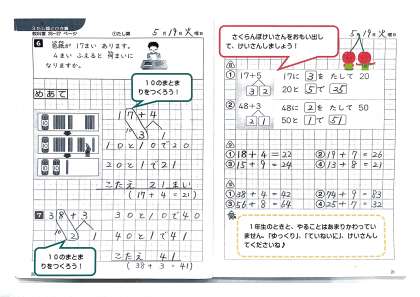 3 たし算とひき算
教科書 26~27 ページ
①たし算
5月19日火曜日
6 色紙が 17まい あります。
4まい ふえると 何まいに
なりますか。
めあて
10のまとま
りをつくろう!
17+4
3 1
10と10で20
20と1で21
こたえ 21まい
(17+4=21)
7 38+3
2 1
30と10で40
40と1で41
こたえ 41
(38+3=41)
10のまとま
りをつくろう!
さくらんぼけいさんをおもい出し
て、けいさんしましょう!
5月19日火曜日
① 17+5
3 2
17に 3 を たして 20
20と 5で 25
② 48+3
2 1
48に 2 を たして 50
50と 1で 51
①18+4=22
②19+7=26
③15+9=24
④13+8=21
①38+4=42
②74+9=83
③56+8=64
④25+7=32
1年生のときと、やることはあまりかわってい
ません。「ゆっくり」、「ていねいに」、けいさんし
てくださいね♪